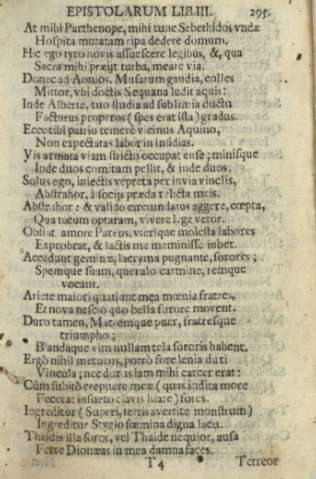 EPISTOLARUM LIB.III. 295.
At mihi Parthenope, mihi tunc Sebethidos vndæ
Hospita mutatam ripa dedere domum,
Hic ego tyro novis assuescere legibus, &, qua
Sacra mihi præijt turba, meare via.
Donec ad Aonios, Musarum gaudia, colles
Mittor, vbi doctis Sequana ludit aquis:
Inde Alberte, tuo studia ad sublimia ductu
Facturus properos (spes erat ista) gradus.
Ecce tibi patrio temerè vicinus Aquino,
Non expectatas labor in insidias.
Vis armata viam stricto occupat ense; minisque
Inde duos comitum pellit, & inde duos.
Solus ego, iniectis vepreta per invia vinclis,
Abstrahor, à socijs præda relicta meis.
Abstrahor: & valido circumdatus aggere, cœpta,
Qua tecum optaram, vivere lege vetor.
Obstat amore Parens, vterique molesta labores
Exprobrat, & lactis me meminisse iubet.
Accedunt geminæ, lacryma pugnante, sorores;
Spemque suam, querulo carmine, remque
vocant.
Ariete maiori quatiunt mea mœnia fratres,
Et nova nescio quo bella furore movent.
Duro tamen, Matremque puer, fratresque
triumpho;
Blandaque vim nullam tela sororis habent.
Ergò nihil metuens, porrò fore lenia duri
Vincula; nec durus iam mihi carcer erat:
Cùm subitò erepuere meæ (quas indita moce
Fecerat insueto clavis hiare) fores.
Ingreditur (Superi, terris avertite monstrum)
Ingreditur Stygio fœmina digna lacu.
Thaidis illa soror, vel Thaide nequior, ausa
Ferre Dionæas in mea damna faces.
T4 Terreor